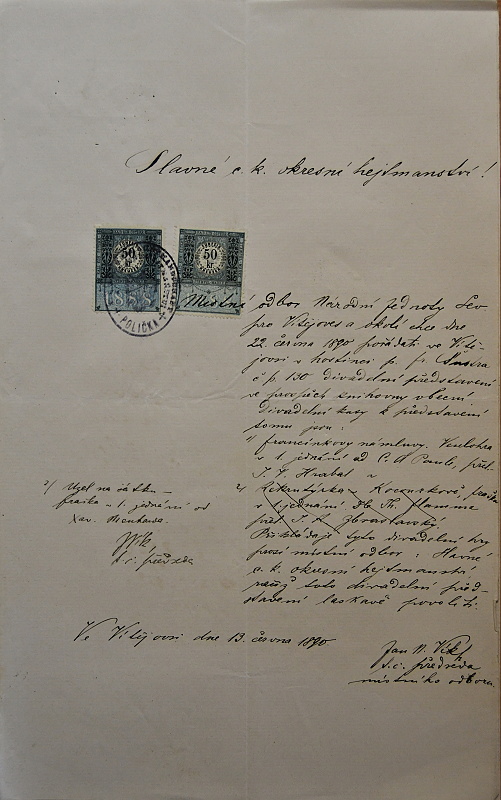 Slavné c. k. okresní hejtmanství!
50 kr
50 kr
1888
POLIČKA
Místní odbor Národní Jednoty Sev
pro Vítějoves a okolí chce dne
22. června 1890 pořádati ve Vítě-
jovsi v hostinci p. Fr. Šustra
č. p. 130 divadelní představení
ve prospěch knihovny v obecní
divadelní kasy k představení
tomu jsou:
1) Francinkovy námluvy. Veselohra
v 1. jednání od C. A. Paull, přel.
J. V. Hrabal a
2) v Kocourkově,
v 1 jednání Dle Th. Flamma
přel. J. K. Zbraslavský
Přikládaje tyto divadelní hry
prosí místní odbor: Slavné
c. k. okresní hejtmanství
račiž toto divadelní před-
stavení laskavě povoliti.
2) Uzel na šátku
fraška v 1. jednání od
Xav.
t. č. předseda
Ve Vítějovsi dne 13. června 1890.
Jan N. Vikl
t. č. předseda
místního odboru.